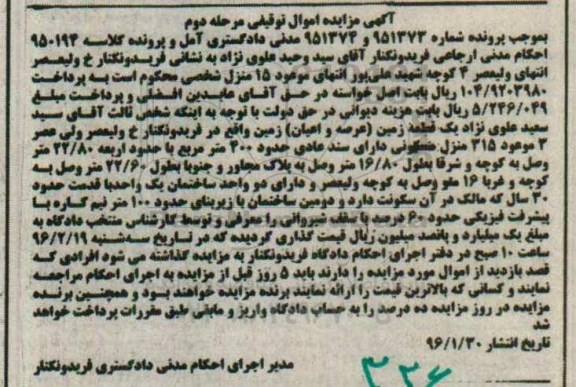 آگهی مزایده اموال توقیفی مرحله دوم
بموجب پرونده شماره ۹۵۱۳۷۳ و ۹۵۱۳۷۴ مدنی دادگستری آمل و پرونده کلاسه ۹۵۰۱۹۴
احکام مدنی ارجاعی فریدونکنار آقای سید وحید علوی نژاد به نشانی فریدونکنار خ ولیعصر
انتهای ولیعصر ۴ کوچه شهید علی‌پور انتهای موعود ۱۵ منزل شخصی محکوم است به پرداخت
۱۰۴/۹۲۰۳۹۸۰ ریال بابت اصل خواسته در حق آقای عابدین افضلی و پرداخت مبلغ
۵/۲۴۶/۰۴۹ ریال بابت هزینه دیوانی در حق دولت با توجه به اینکه شخص ثالث آقای سید
سعید علوی نژاد یک قطعه زمین (عرصه و اعیان) زمین واقع در فریدونکنار خ ولیعصر ولی عصر
۳ موعود ۳۱۵ منزل مسکونی دارای سند عادی حدود ۴۰۰ متر مربع با حدود اربعه ۲۲/۸۰ متر
وصل به کوچه و شرقا بطول ۱۶/۸۰ متر وصل به پلاک مجاور و جنوبا بطول ۲۲/۶۰ متر وصل به
کوچه و غربا ۱۶ متر وصل به کوچه ولیعصر و دارای دو واحد ساختمان یک واحدبا قدمت حدود
۳۰ سال که مالک در آن سکونت دارد و دومین ساختمان با زیربنای حدود ۱۰۰ متر نیم کاره با
پیشرفت فیزیکی حدود ۶۰ درصد با سقف شیروانی را معرفی و توسط کارشناس منتخب دادگاه به
مبلغ یک میلیارد و پانصد میلیون ریال قیمت گذاری گردیده که در تاریخ سه‌شنبه ۹۶/۲/۱۹
ساعت ۱۰ صبح در دفتر اجرای احکام دادگاه فریدونکنار به مزایده گذاشته می شود افرادی که
قصد بازدید از اموال مورد مزایده را دارند باید ۵ روز قبل از مزایده به اجرای احکام مراجعه
نمایند و کسانی که بالاترین قیمت را ارائه نمایند برنده مزایده خواهند بود و همچنین برنده
مزایده در روز مزایده ده درصد را به حساب دادگاه واریز و مابقی طبق مقررات پرداخت خواهد
شد
تاریخ انتشار ۹۶/۱/۳۰
مدیر اجرای احکام مدنی دادگستری فریدونکنار
۳۳۶